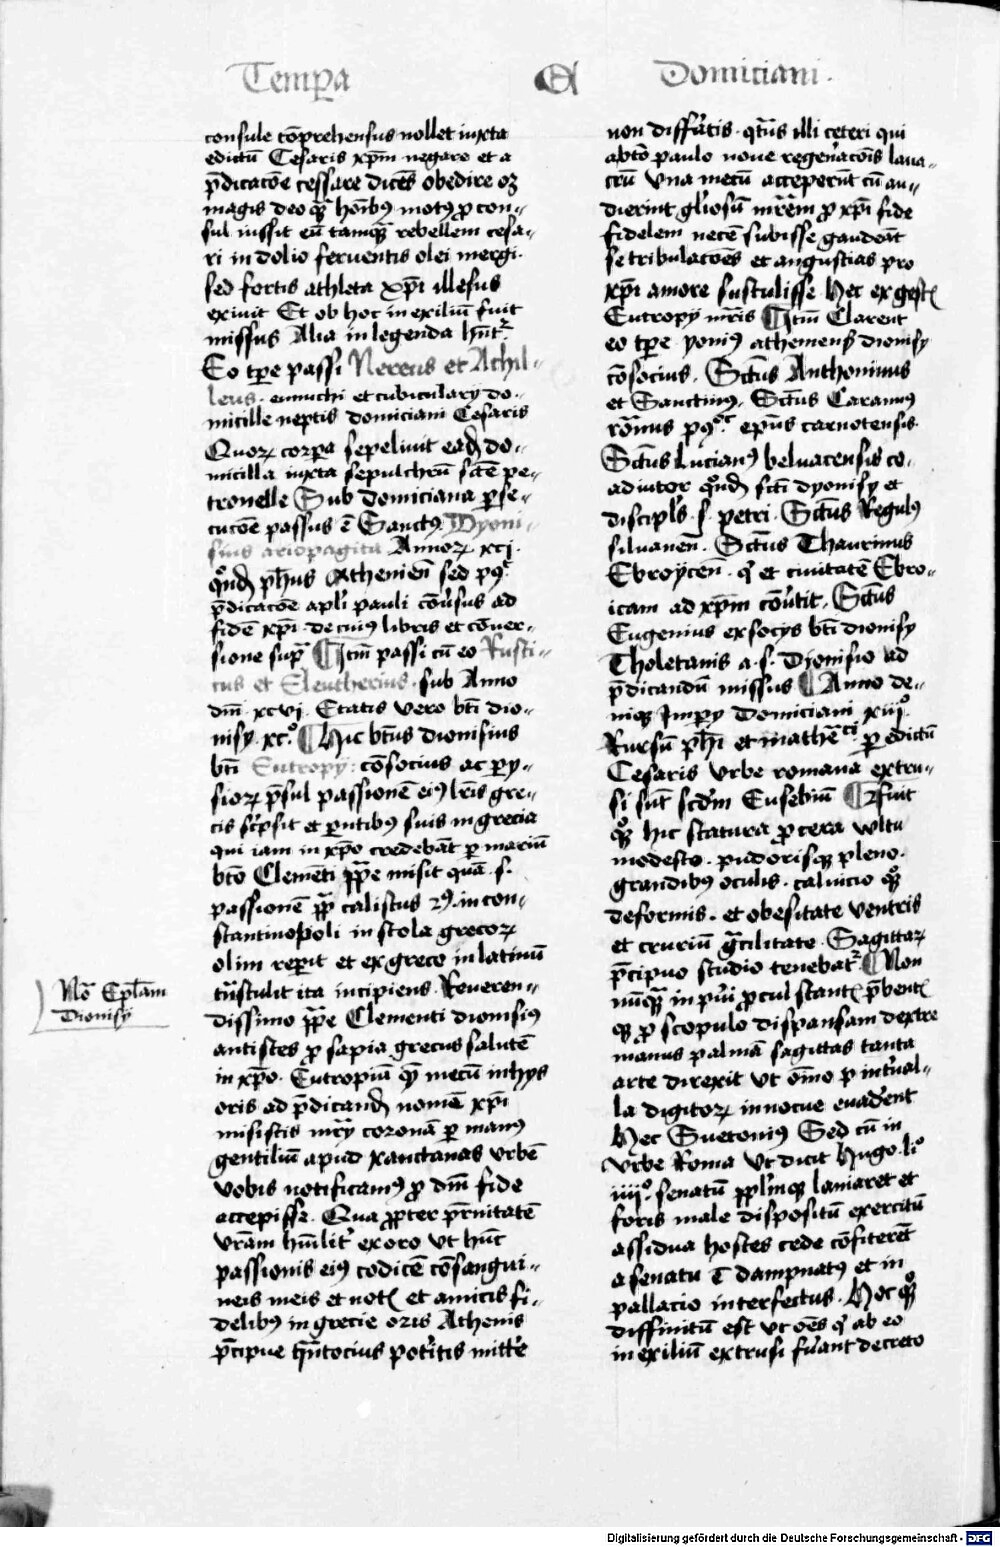 Temp̲a
Et
Domiciani.
consule cōprehensus nollet iuxta
edictū Cesaris xp̄m negare et a
p̄dicacōe cessare dicēs obedire oꝫ
magis deo qͣꝫ hōibꝰ motꝰ ꝓcon-
sul iussit eū tamqͣꝫ rebellem cesa-
ri in dolio feruentis olei mergi.
sed fortis athleta xp̄i illesus
exiuit Et ob hoc in exiliū fuit
missus Alia in legenda hn̄t᷑
Eo tp̄e passi Nereus et Achil-
leus. eunuchi et cubiculary do-
micille neptis domiciani Cesaris
Quoꝝ corpa sepeliuit eadē do-
micilla iuxta sepulchrū sc̄e pe-
tronelle Sub domiciana ꝑse-
cucōe passus ē Sanctꝰ Dyoni-
sius ariopagita Annoꝝ xcj.
qͦndā ph̄us Athenien̄ sed pꝰ
p̄dicacōe apl̄i pauli cōuersus ad
fidē xp̄i. de cuiꝰ libris et cōuer-
sione supͣ ¶ Itm̄ passi cū eo Rusti-
cus et Eleutherius. sub Anno
dn̄i xcvi. Etatis vero bt̄i dio-
nisy. xc.ͦ ¶ Hic bt̄us dionisius
bt̄i Eutropy: cōsocius ac pary-
sioꝝ p̄sul passionē eiꝰ lr̄is gre-
cis sc̓psit et pn̄tibꝰ suis in grecia
qui iam in xp̄o credebāt ꝑ mariū
bt̄o Clemēti pp̄e misit quā .s.
passionē pp̄ calistus 2ꝰ. in con-
stantinopoli in scola grecoꝝ
olim reꝑit et ex greco in latinū
tn̄stulit ita incipiens. Reueren-
dissimo pp̄e Clementi dionisiꝰ
antistes ꝓsapia grecus salutē
in xp̄o. Eutropiū qͤ mecū in hys
oris ad p̄dicandū nomē xp̄i
misistis mr̄y coronā ꝑ manꝰ
gentiliū apud xanctanas vrbē
vobis notificamꝰ ꝓ dn̄i fide
accepisse. Qua ꝓpter pr̄nitatē
vr̄am hūilit᷑ exoro vt hn̄c
passionis eiꝰ codicē cōsangui-
neis meis et not̄ et amicis fi-
delibꝰ in grecie oris Athenis
p̄cipue qn̄tocius pot̓itis mitt̓e
Nō Epl̄am
Dionisy
non diffr̄atis. qt̓us illi ceteri qui
a bt̄o paulo noue regen̓acōis laua-
crū vna mecū acceper̄t cū au-
dierint gl̓iosū mr̄em ꝓ xp̄i fide
fidelem necē subisse gaudeāt
se tribulacōes et angustias pro
xp̄i amore sustulisse. Hec ex gest̄
Eutropy mr̄is ¶ Itm̄ Clarent
eo tp̄e yoniꝰ atheniensꝭ dionisy
cōsocius. Sct̄us Anthoninus
et Sanctinꝰ. Sct̄us Caraunꝰ
rōnus pꝰ ep̄us carnotensis.
Sct̄us Lucianꝰ beluacensis co-
adiutor qͦndā sct̄i dyonisy et
discipl̄s .s. petri. Sct̄us Regulꝰ
siluanen̄. Sct̄us Thaurinus
Ebroÿcen̄. qͥ et ciuitatē Ebro-
icam ad xp̄m cōu̓tit. Sct̄us
Eugenius ex socys bt̄i dionisy
Tholetanis a .s. Dionisio ad
p̄dicandū missus ¶ Anno de-
niqꝫ Impery Domiciani xiij.ͦ
Rursū ph̄i et mathēci ꝑ edictū
Cesaris vrbe romana extru-
si sūt scd̓m Eusebiū ¶ Fuit
qͦꝫ hic statura ꝓcera vltu
modesto. pudorisqꝫ pleno.
grandibꝰ oculis. caluicio qͦꝫ
deformis. et obesitate ventris
et cruriū gͣcilitate. Sagittaꝝ
p̄cipuo studio tenebat᷑ ¶ Non
nūqͣꝫ in pu̓i procul stant̄ p̄bent̄
qꝫ ꝓ scopulo dispansam dextre
manus palmā sagittas tanta
arte direxit vt oīno ꝑ int̓ual-
la digitoꝝ innocue euaderent
Hec Suetoniꝰ Sed cū in
vrbe Roma vt dicit Hugo. liͦ
iiij.ͦ senatū ppl̄mqꝫ laniaret et
foris male dispositū exercitū
assidua hostes cede cōficerēt
a senatu ē dampnatꝰ et in
pallacio interfectus. Hoc qͦꝫ
diffinitū est vt oēs qͥ ab eo
in exiliū extrusi fu̓ant decreto